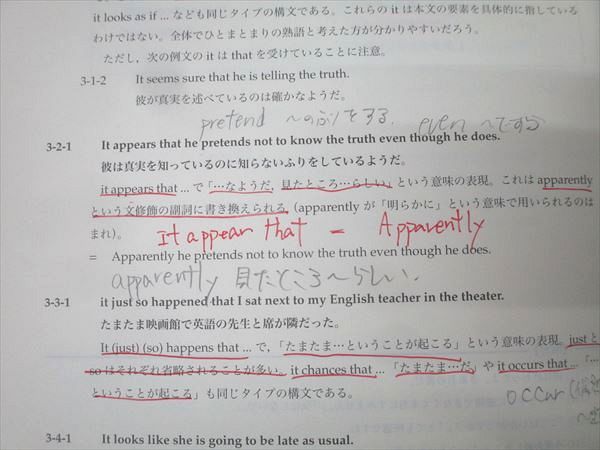 it looks as if ... なども同じタイプの構文である。これらの it は本文の要素を具体的に指している
わけではない。全体でひとまとまりの熟語と考えた方が分かりやすいだろう。
ただし，次の例文の it は that を受けていることに注意。
3-1-2 It seems sure that he is telling the truth.
彼が真実を述べているのは確かなようだ。
pretend 〜のふりをする even 〜ですら
3-2-1 It appears that he pretends not to know the truth even though he does.
彼は真実を知っているのに知らないふりをしているようだ。
it appears that ... で「…なようだ，見たところ…らしい」という意味の表現。これは apparently
という文修飾の副詞に書き換えられる。(apparently が「明らかに」という意味で用いられるのは
まれ)。
It appear that = Apparently
= Apparently he pretends not to know the truth even though he does.
apparently 見たところ〜らしい.
3-3-1 it just so happened that I sat next to my English teacher in the theater.
たまたま映画館で英語の先生と席が隣だった。
It (just) (so) happens that ... で，「たまたま…ということが起こる」という意味の表現。just と
so はそれぞれ省略されることが多い。it chances that ...「たまたま…だ」や it occurs that ...「…
ということが起こる」も同じタイプの構文である。
occur
3-4-1 It looks like she is going to be late as usual.